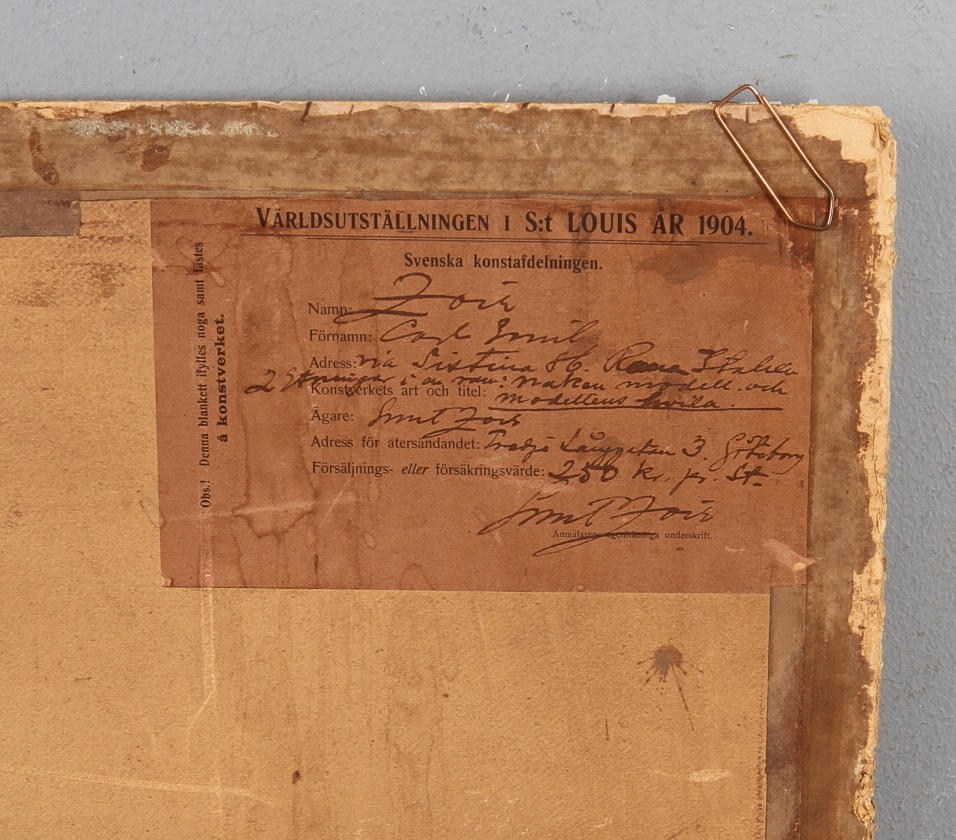 VÄRLDSUTSTÄLLNINGEN I S:t LOUIS ÅR 1904.
Svenska konstafdelningen.
Namn: Zoir
Förnamn: Carl Emil
Adress: via Sistina 86. Roma Italien
2 Etsningar i en ram: naken modell och
Konstverkets art och titel: modellens hvila.
Ägare: Emil Zoir
Adress för återsändandet: Tredje Långgatan 3. Göteborg
Försäljnings- eller försäkringsvärde: 250 kr. pr. St.
Emil Zoir
Anmälarens egenhändiga underskrift.
Obs.! Denna blankett ifylles noga samt fästes
å konstverket.